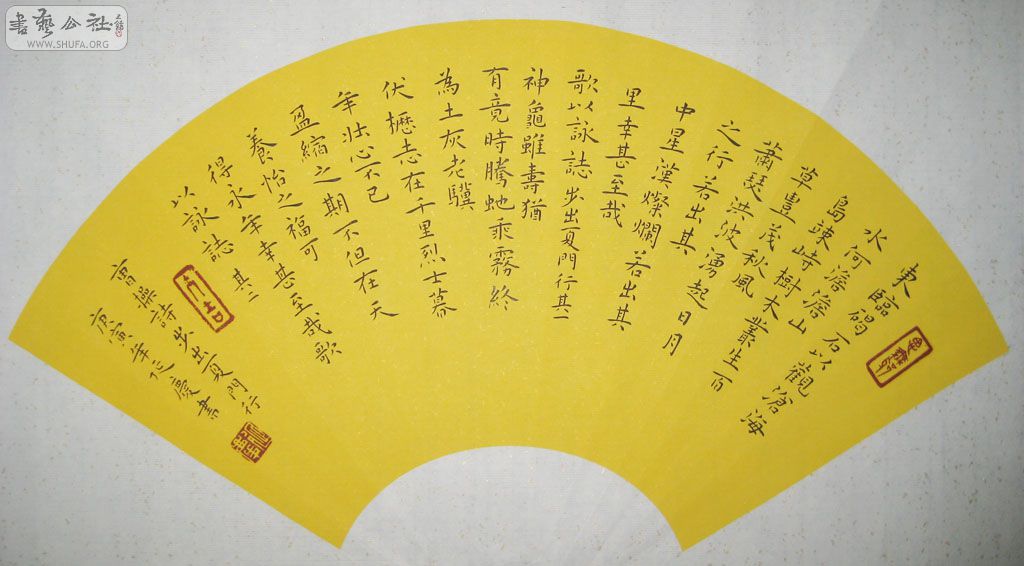 書藝公社
WWW.SHUFA.ORG
東臨碣石以觀滄海
水何澹澹山
島竦峙樹木叢生百
草豊茂秋風
蕭瑟洪波湧起日月
之行若出其
中星漢燦爛若出其
里幸甚至哉
歌以詠誌步出夏門行其一
神龜雖壽猶
有竟時騰虵乘霧終
為土灰老驥
伏櫪志在千里烈士暮
年壯心不已
盈縮之期不但在天
養怡之福可
得永年幸甚至哉歌
以詠誌 其二
曹操詩步出夏門行
庚寅年延慶書